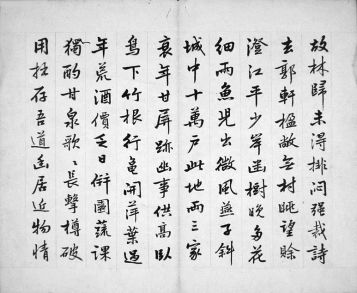 故林歸未得排悶强裁詩
去郭軒楹敞无村眺望賒
澄江平少岸幽樹晚多花
細雨魚兒出微風燕子斜
城中十萬户此地兩三家
衰年甘屏跡幽事供高臥
鳥下竹根行龜開萍葉過
年荒酒價乏日併園蔬課
獨酌甘泉歌〻長擊樽破
用拙存吾道幽居近物情